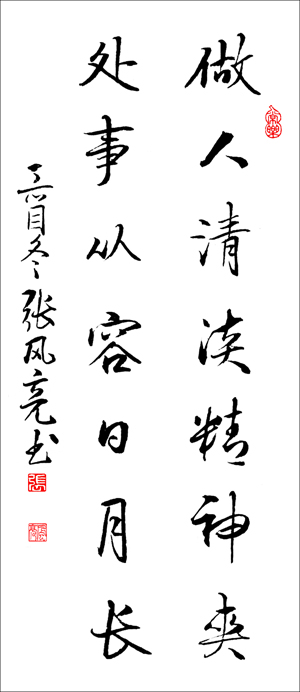 做人清淡精神爽
处事从容日月长
冬张风亮书